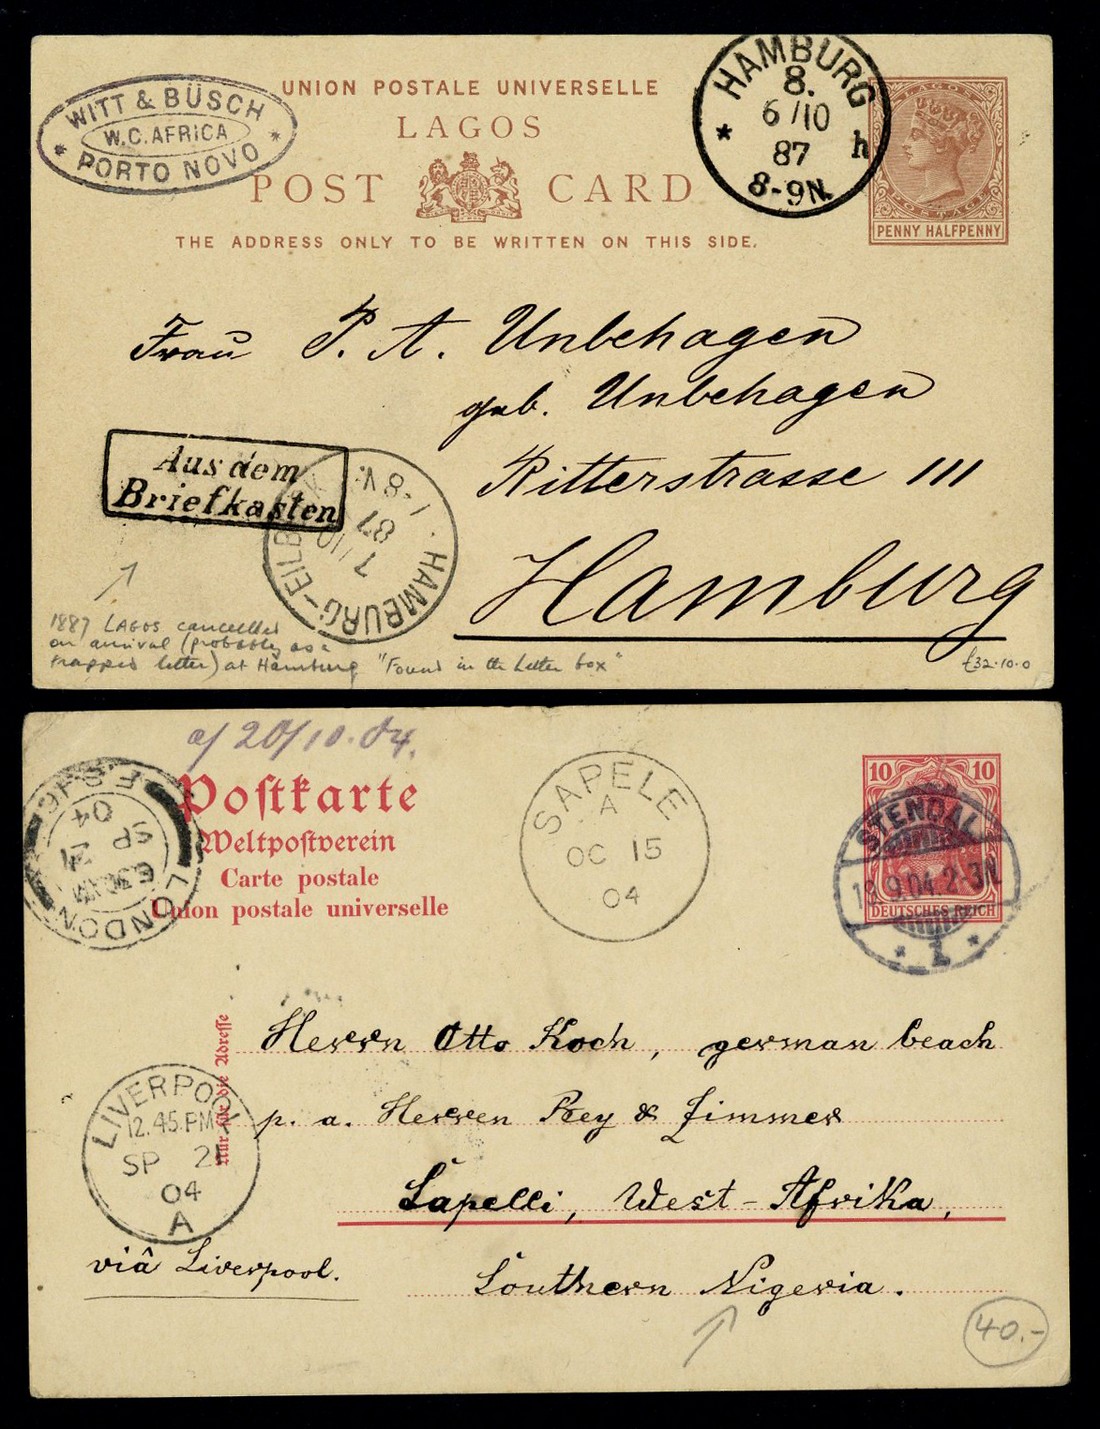 WITT & BÜSCH
W.C. AFRICA
* PORTO NOVO *
UNION POSTALE UNIVERSELLE
LAGOS
POST CARD
THE ADDRESS ONLY TO BE WRITTEN ON THIS SIDE.
HAMBURG
8.
6/10
87
8-9N.
* h
LAGOS
POSTAGE
PENNY HALFPENNY
Frau P. A. Unbehagen
geb. Unbehagen
Ritterstrasse 111
Hamburg
Aus dem
Briefkasten
HAMBURG-EILBECK
7/10
87
1-8V.
1887 LAGOS cancelled
on arrival (probably as a
trapped letter) at Hamburg "Found in the letter box"
£32.10.0
a/ 20/10.04.
Postkarte
Weltpostverein
Carte postale
Union postale universelle
LONDON
SP
04
SAPELE
A
OC 15
04
10 10
DEUTSCHES REICH
STENDAL
19.9.04.2-3N.
* 1 *
Nur für die Adresse
Herrn Otto Koch, german beach
p. a. Herren Rey & Zimmer
Sapelli, West-Afrika,
Southern Nigeria.
LIVERPOOL
12.45.PM
SP 21
04
A
viâ Liverpool.
40.-